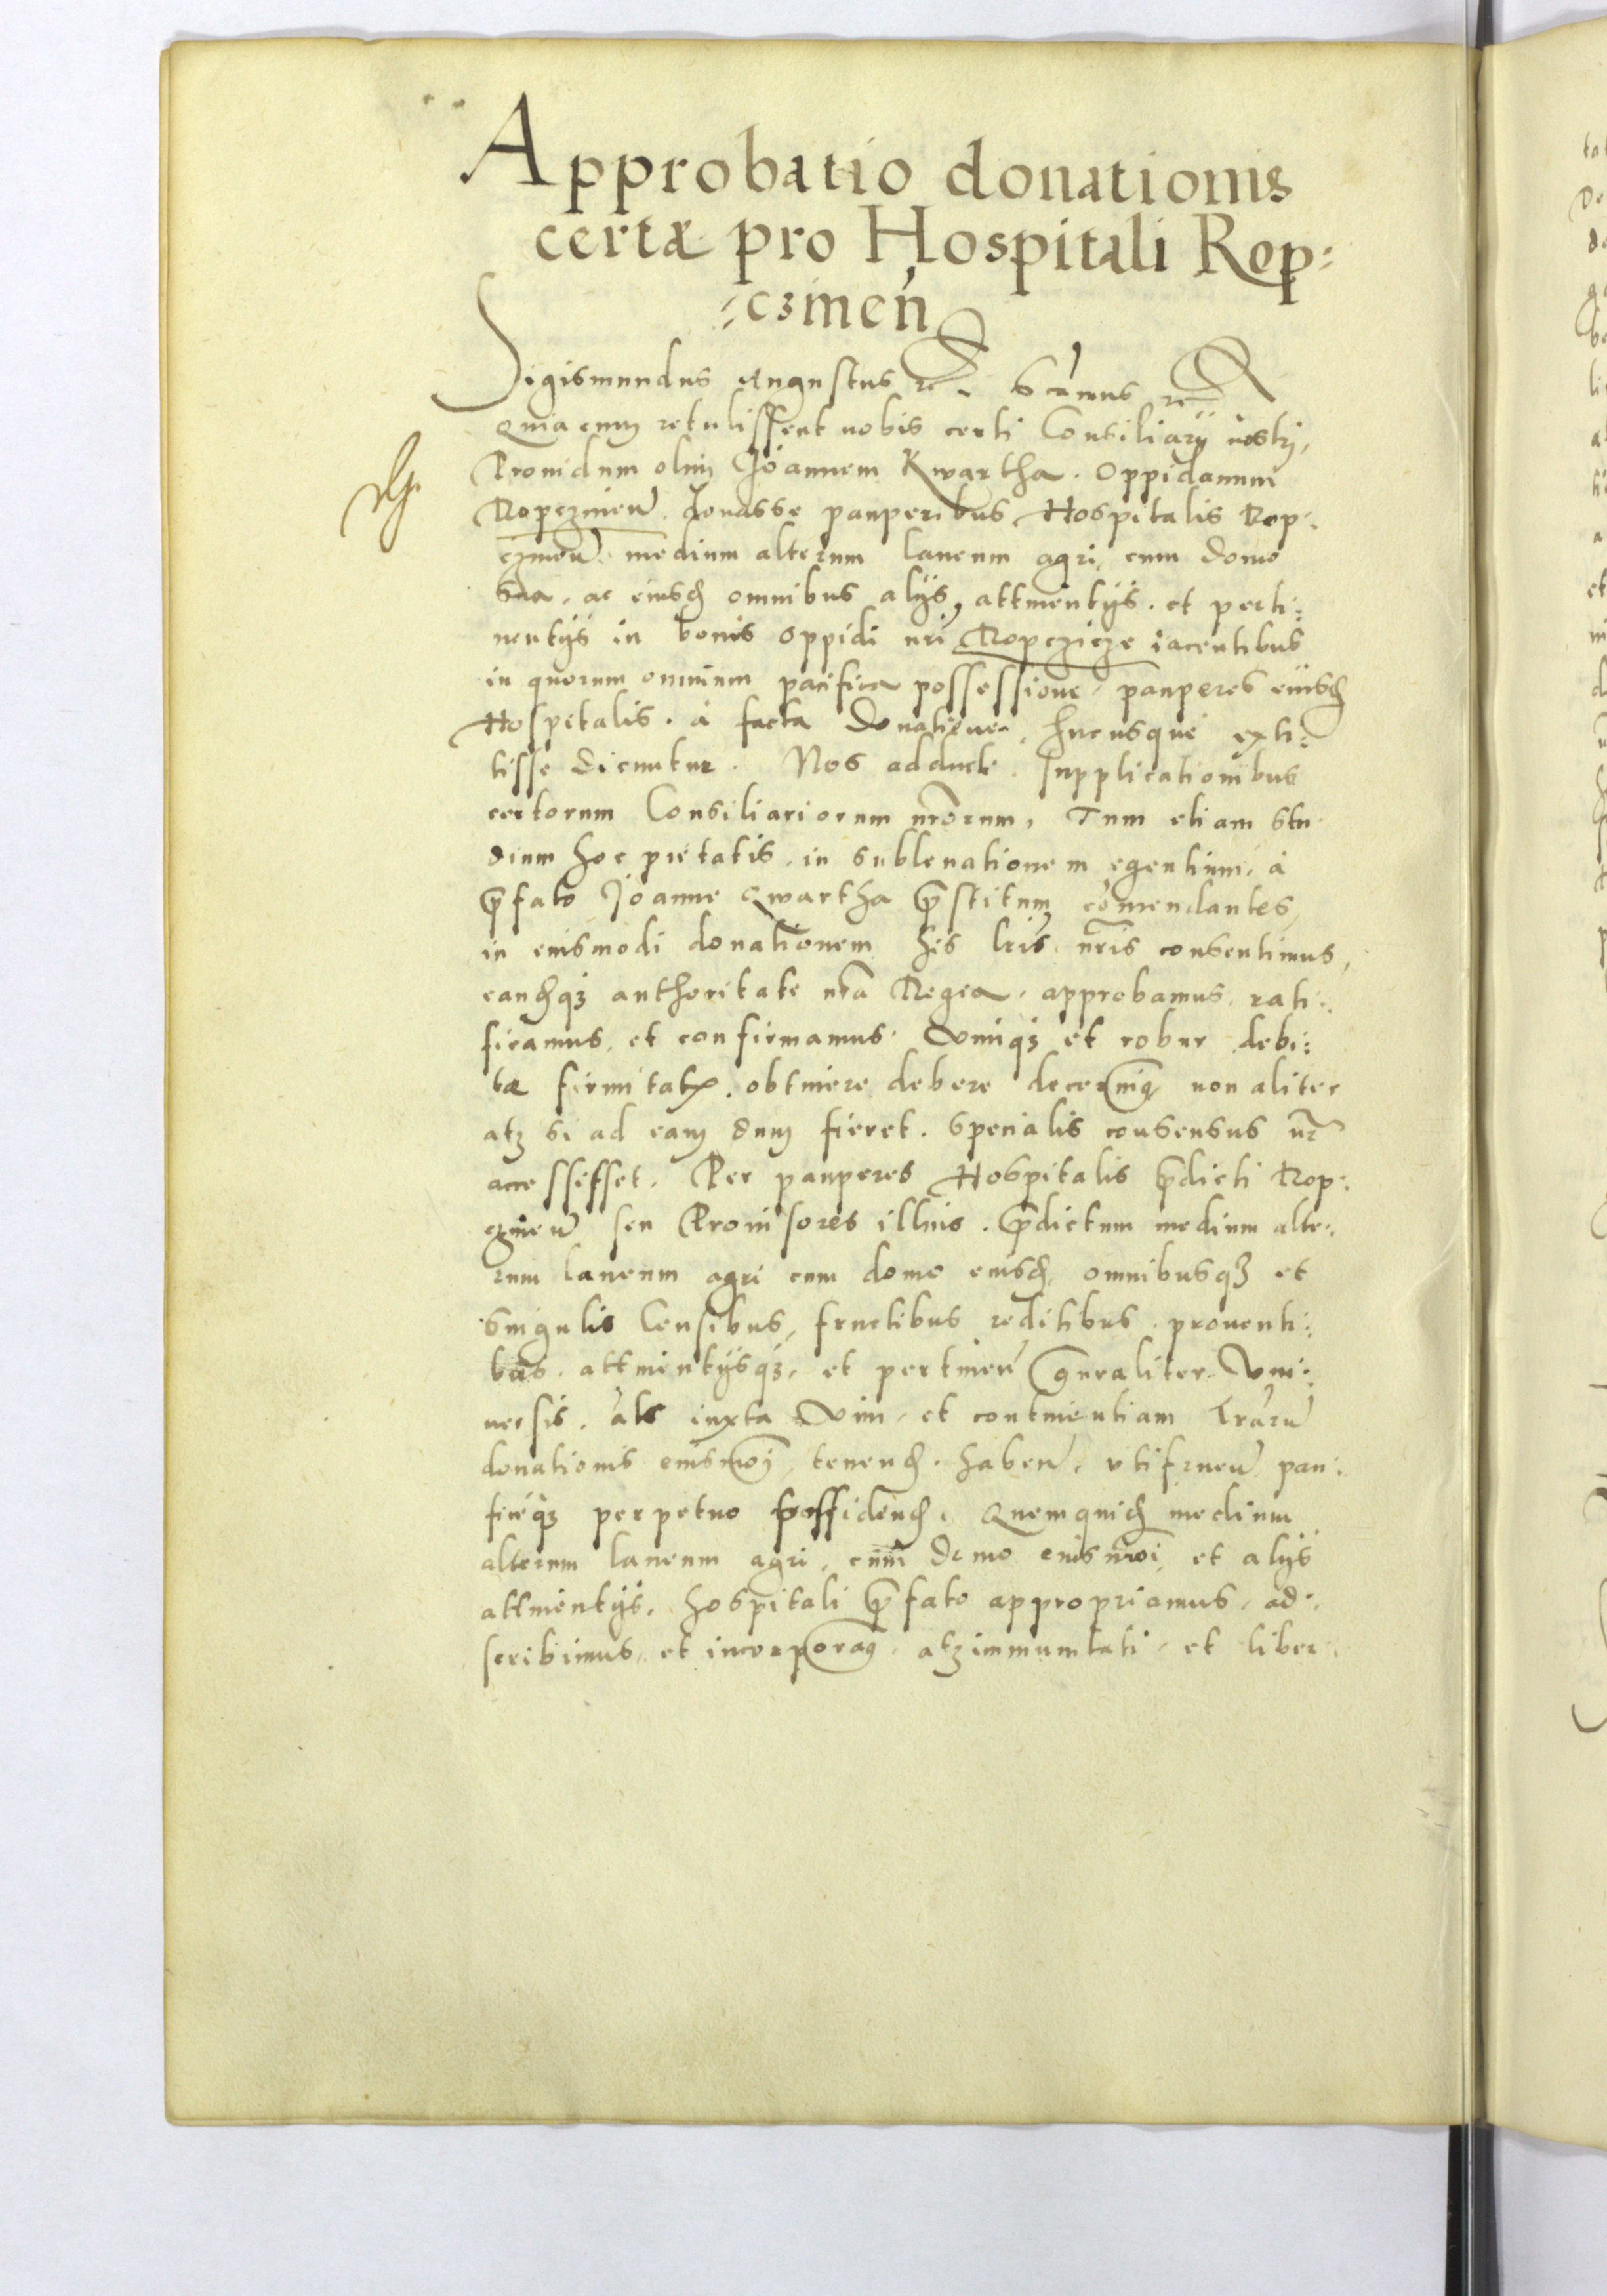 Approbatio donationis
certæ pro Hospitali Rop:
:czinen̄
Sigismundus Augustus rc. Scimus rc
Quia cum retulissent nobis certi Consiliarÿ nostri,
Prouidum olim Joannem Kwartha. Oppidanum
Ropczinen̄. donasse pauperibus Hospitalis Rop:
czinen̄. medium alterum laneum agri, cum domo
sua, ac eiusd omnibus alÿs, attinentÿs. et perti:
nentÿs in bonis oppidi nr̄i Ropczicze iacentibus
in quorum omnium pacifica possessione, pauperes eiusd
Hospitalis. à facta donatione, hucusque exti:
tisse dicuntur. Nos adducti supplicationibus
certorum Consiliariorum nr̄orum, Tum etiam stu
dium hoc pietatis, in subleuationem egentium, à
p̄fato Joanne Qwartha p̄stitum, com̄endantes,
in eiusmodi donationem his lr̄is nr̄is consentimus,
eandq3 authoritate nr̄a Regia, approbamus, rati:
ficamus, et confirmamus. Vimq3 et robur debi:
tæ firmitatis. obtinere debere decernimq non aliter
atq3 si ad eam dum fieret. specialis consensus nr̄
accessisset. Per pauperes Hospitalis p̄dicti Rop:
czinen̄ seu Prouisores illius. p̄dictum medium alte:
rum laneum agri cum domo eiusd, omnibusq3 et
singulis Censibus, fructibus reditibus. prouenti:
bus. attinentÿsq3, et pertinen̄ gn̄raliter Vni:
uersis. al̄s iuxta Vim, et continentiam lr̄arū
donationis eiusmoi, tenend. haben̄. vtifruen̄ paci
ficeq3 perpetuo possidend. Quemquid medium
alterum laneum agri, cum domo eiusmoi, et alÿs
attinentÿs, hospitali p̄fato appropriamus, ad:
scribimus, et incorporamq, atq3 immunitati, et liber.